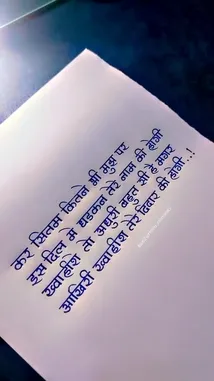 कर सितम कितने भी मुझ पर
इस दिल में धड़कन तेरे नाम की होगी
ख्वाहीश तो अधुरी बहुत सी है मगर
आखिरी ख्वाहीश तेरे दिदार की होगी ..!